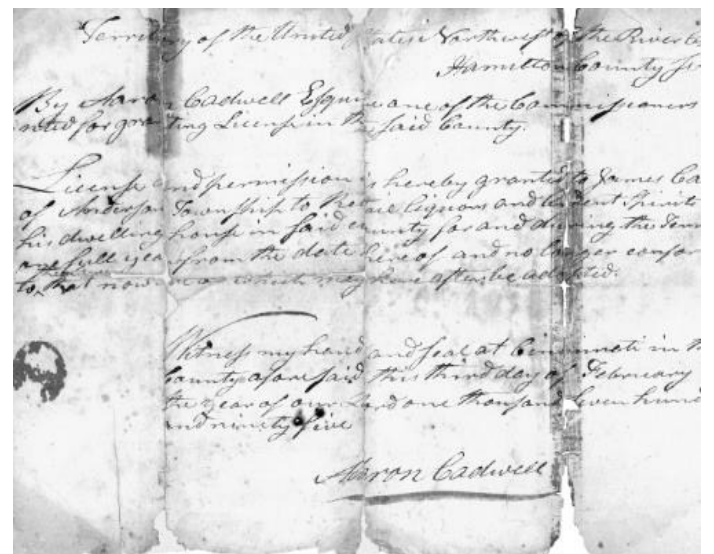 Territory of the United States Northwest of the River
Hamilton County
By Aaron Cadwell Esquire one of the Commissioners
for granting License in the said County.
License and permission is hereby granted to James
of Anderson Township to Retail liquors and Spirits
his dwelling house in said county for and during the
one full year from the date hereof and no longer
to that now or which may here after be adopted.
Witness my hand and seal at Cincinnati in
County aforesaid this third day of February
the year of our Lord one thousand seven hund
and ninety five
Aaron Cadwell